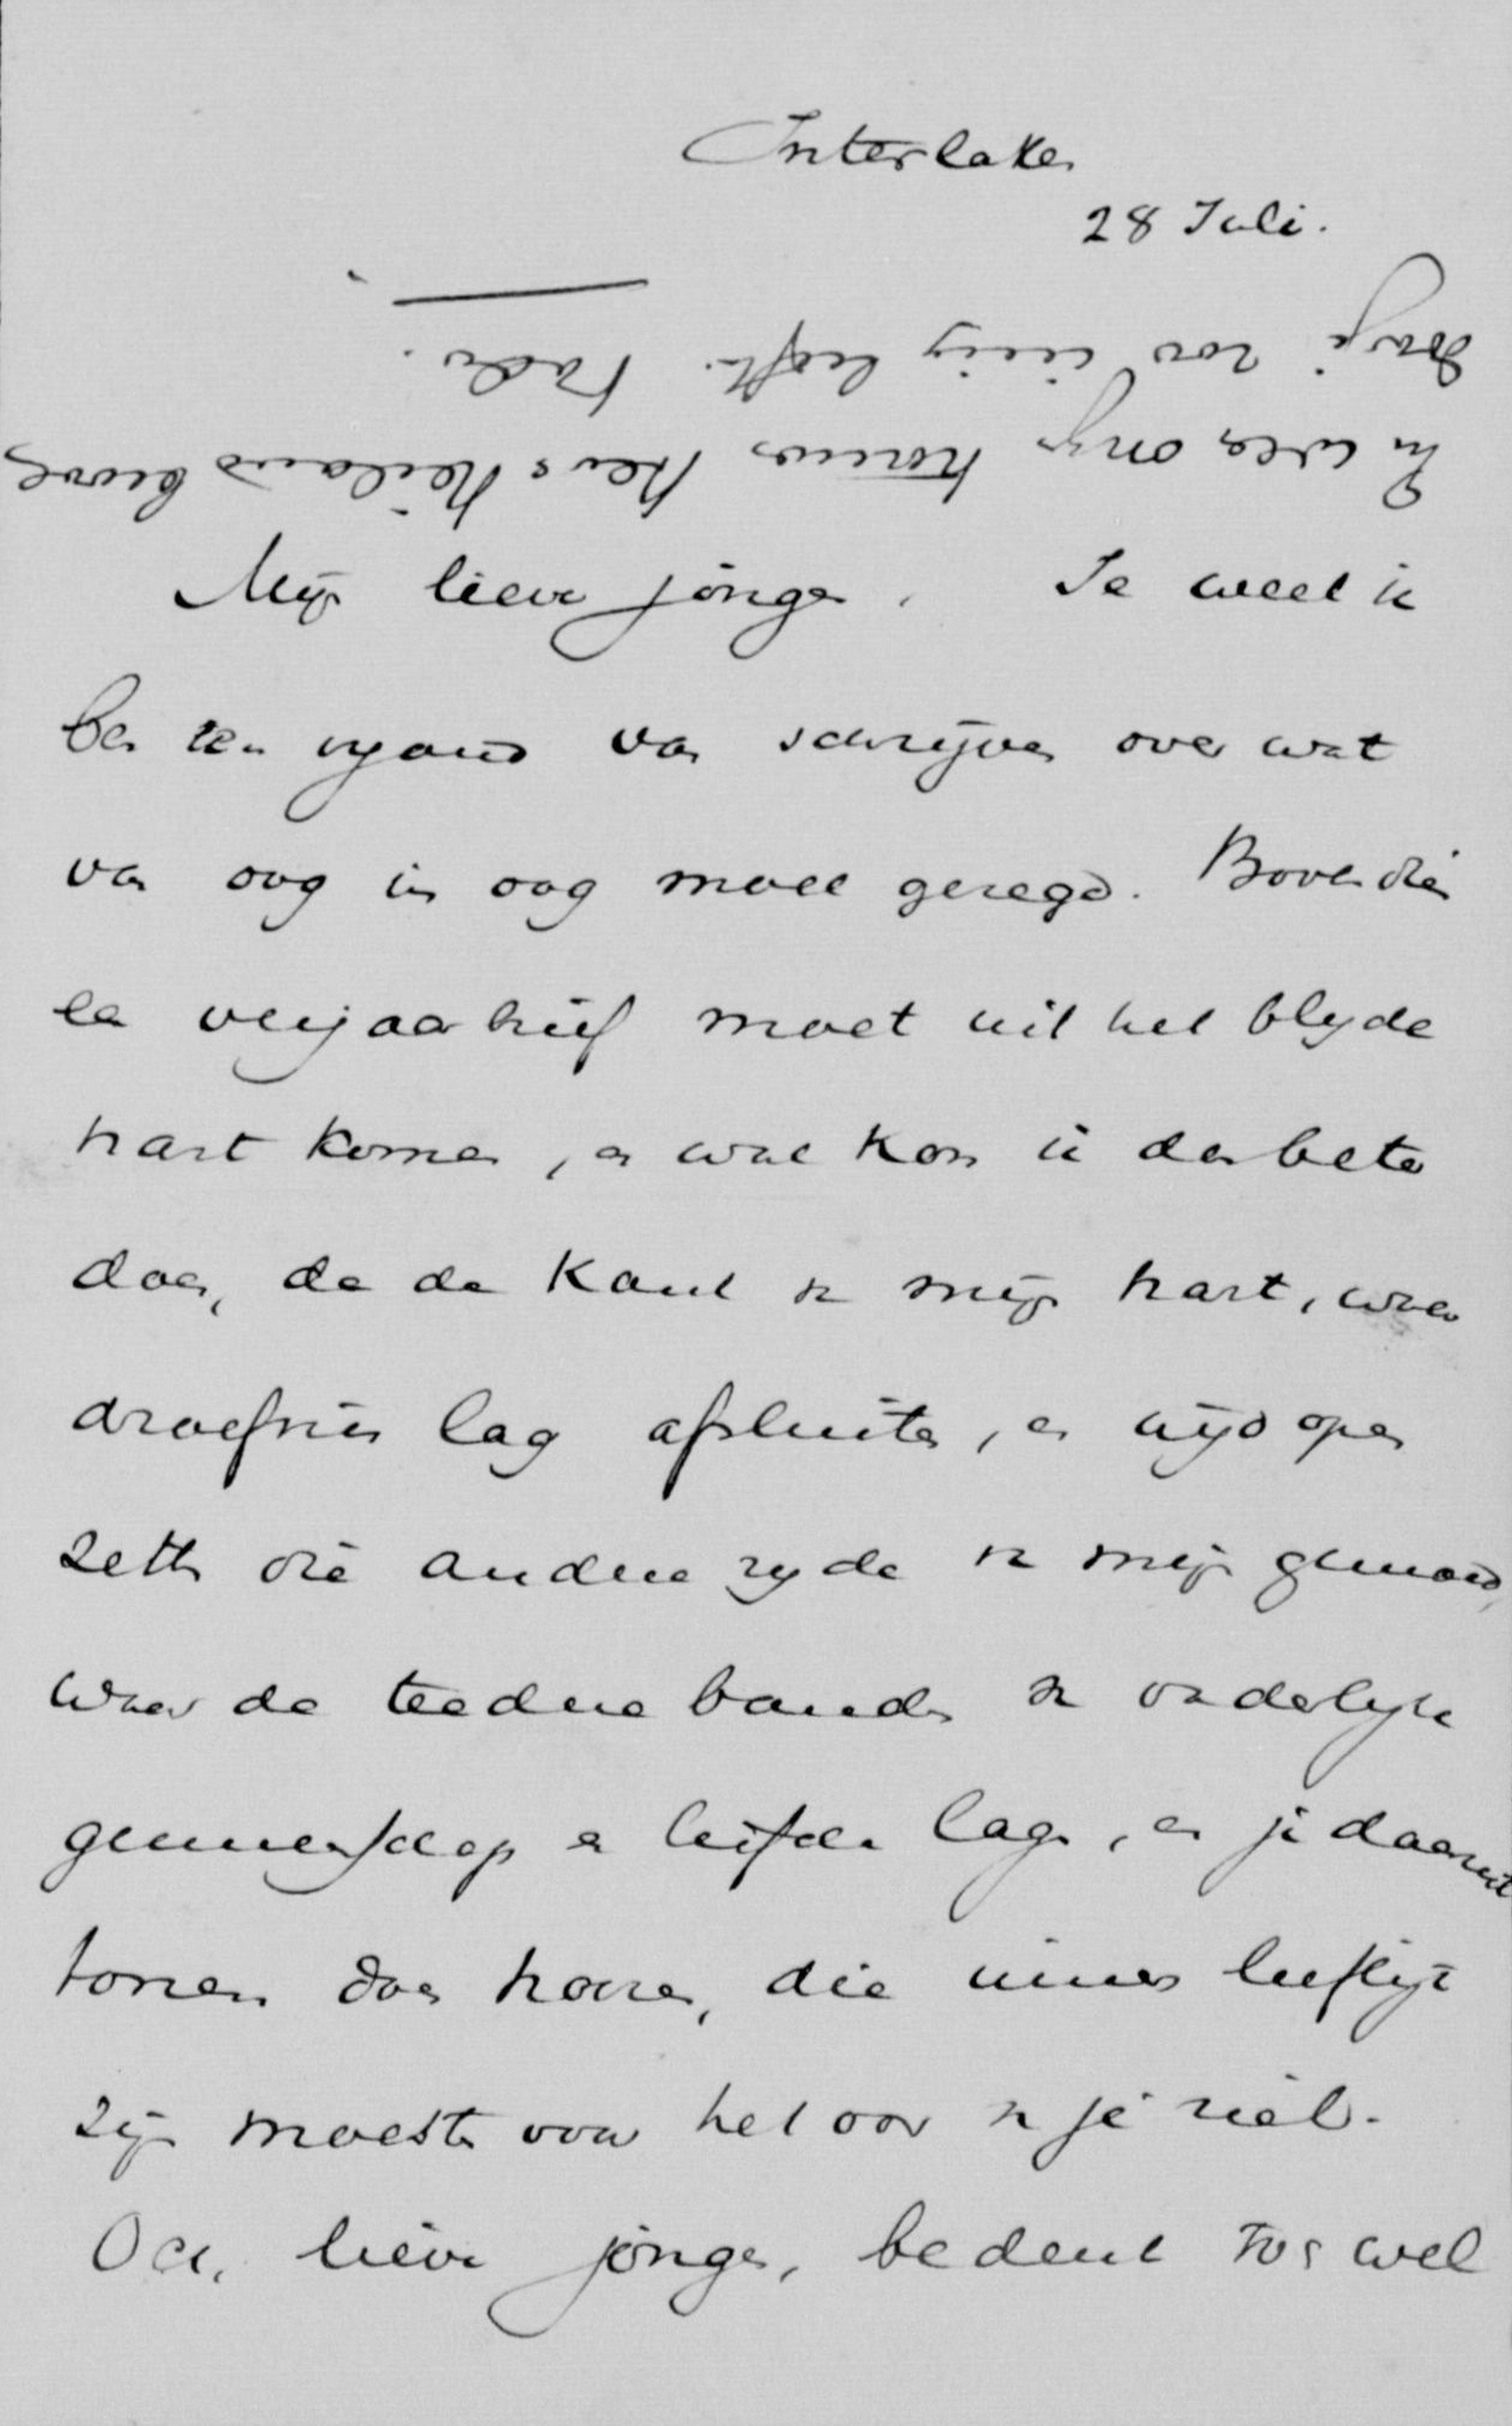 Interlaken
28 Juli.
Mijn lieve jongen. Je weet ik
ben een vijand van schrijven over wat
van oog in oog moet gezegd. Bovendien
een verjaarbrief moet uit het blijde
hart komen, en wat kon ik dan beter
doen, dan de kant van mijn hart, waar
droefnis lag afsluiten, en wijd open
zetten die andere zijde van mijn gemoed,
waar de teedere banden van vaderlijke
gemeenschap en liefde lagen, en je daaruit
tonen doen hooren, die immer lieflijk
zijn moesten voor het oor van je ziel.
Och, lieve jongen, bedenk toch wel
En wees onzen trouwen Heiland bevolen
door je zoo innig liefh. Vader.